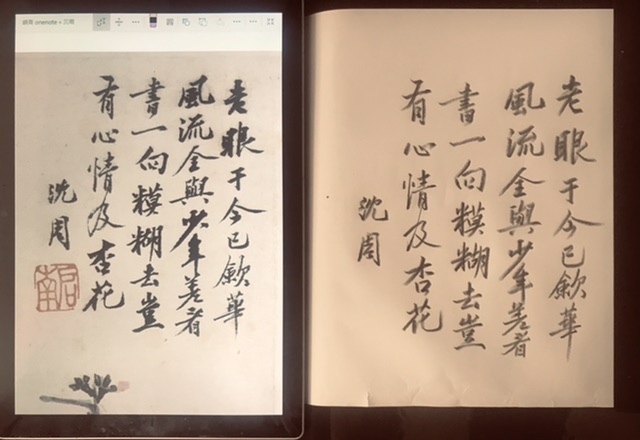 onenote
老眼于今已歛華
風流全與少年差看
書一向糢糊去豈
有心情及杏花
沈周
老眼于今已歛華
風流全與少年差看
書一向糢糊去豈
有心情及杏花
沈周